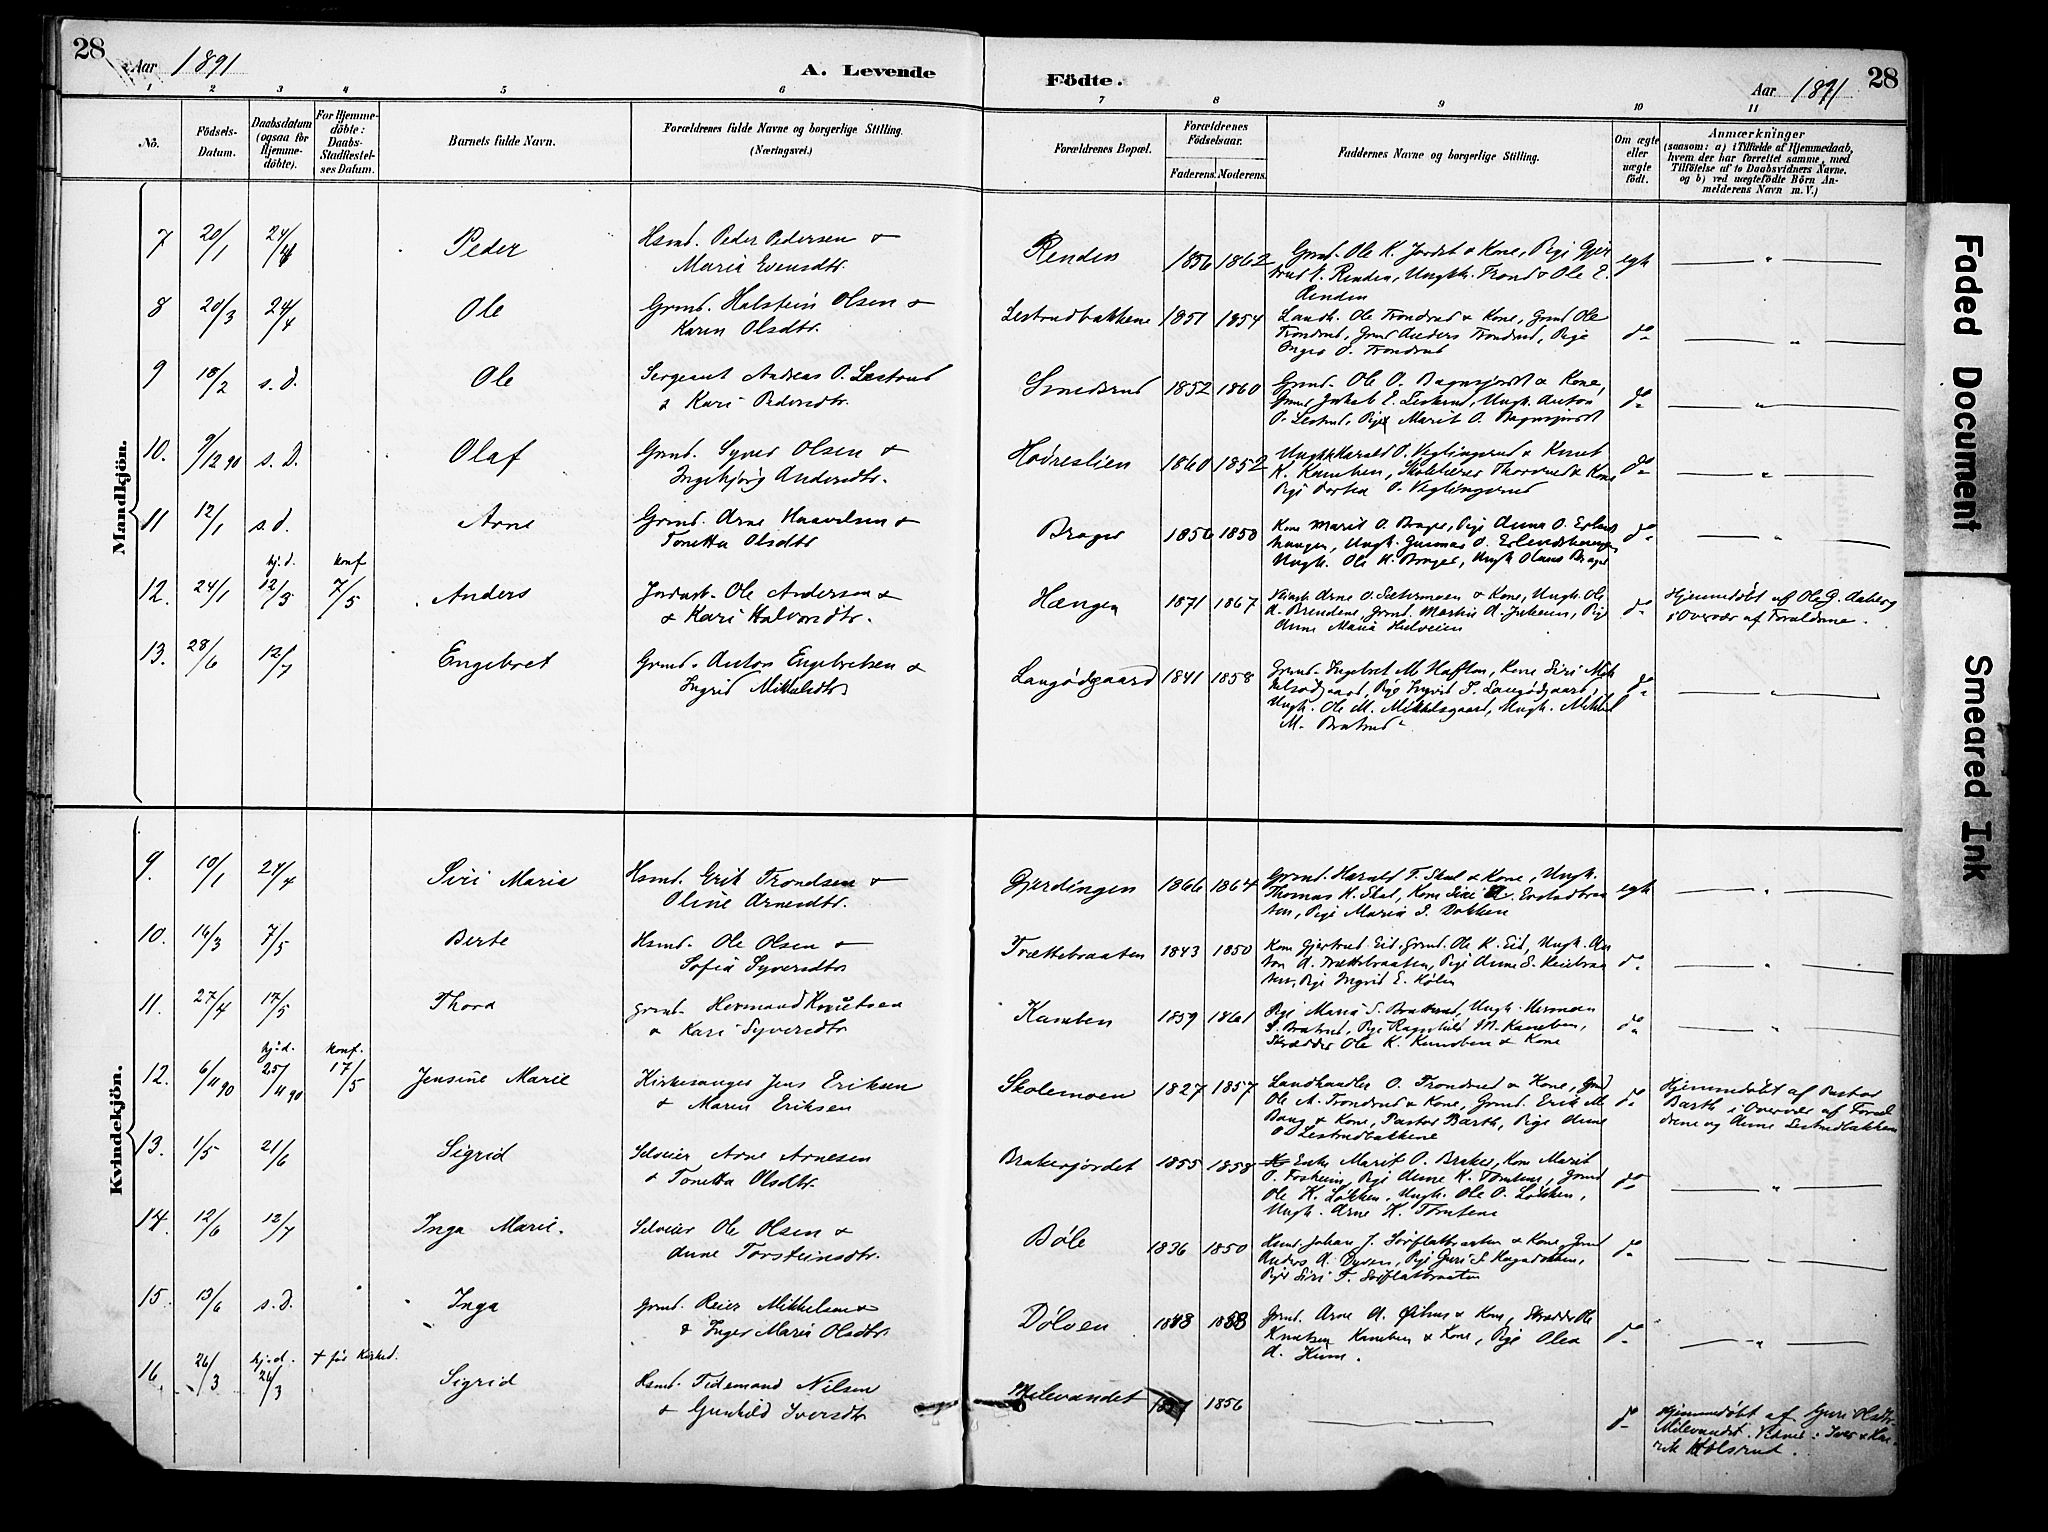 28
Aar 1891
A. Levende
Födte.
Aar 1891
28
1 2 3 4 5 6 7 8 9 10 11
No.
Födsels-
Datum.
Daabsdatum
(ogsaa for
Hjemme-
döbte).
For Hjemme-
döbte:
Daabs-
Stadfestel-
ses Datum.
Barnets fulde Navn.
Forældrenes fulde Navne og borgerlige Stilling.
(Næringsvei.)
Forældrenes Bopæl.
Forældrenes
Födselsaar.
Faderens.
Moderens.
Faddernes Navne og borgerlige Stilling.
Om ægte
eller
uægte
født.
Anmærkninger
(saasom: a) i Tilfælde af Hjemmedaab,
hvem der har forrettet samme, med
Tilföielse af to Daabsvidners Navne.
og b) ved uægtefödte Börn An-
melderens Navn m. V.)
Mandkjön.
7 20/1 24/4 Peder
Hsmd. Peder Pedersen &
Maria Evensdtr.
Renden 1856 1862
Grmd. Ole K. Jordet & Kone, Pige Gjer
trud Renden, Ungk. Trond & Ole E.
Renden
egte
8 20/3 24/4 Ole
Grmd. Halstein Olsen &
Karen Olsdtr.
Lestrudbakkene 1851 1854
Landh. Ole Trondrud & Kone, Grmd Ole
Trondrud, Grmd Anders Trondrud, Pige
Inger O. Trondrud
do
9 18/2 s. d. Ole
Sergeant Andreas O. Lestrud
& Kari Pedersdtr.
Smedsrud 1852 1860
Grmd. Ole O. Bagnsjordet & Kone,
Grmd Jakob E. Lestrud, Ungk. Anton
O. Lestrud, Pige Marit O. Bagnsjordet
do
10. 9/12 90 s. d. Olaf
Grmd. Syver Olsen &
Ingebjørg Andersdtr.
Høvreslien 1860 1852
Ungk Harald O. Veglingsrud & Knut
K. Kamben, Skolelærer Thorsrud & Kone
Pige O. Veglingsrud
do
11 12/1 s. d. Arne
Grmd. Arne Haavelsen &
Tonetta Olsdtr
Brager 1850 1850
Kone Marit O. Brager, Pige Anna O. Erlands
haugen, Ungk. O. Erlandshaugen
Ungk. Ole H. Brager, Ungk Olaus Brager
do
hj. d. konf
12. 24/1 12/3 7/5 Anders
Ole Anderson &
& Kari Halvorsdtr.
Hængen 1871 1867
Arne O. Sætermoen & Kone, Ungk. Ole
A. Brendene, Grmd. Martin A. Pige
Anne Maria Hulveien
do
Hjemmedøbt af Ole G. Aaberg
i Overvær af Forældrene.
13. 28/6 12/7 Engebret
Grmd. Anton Engebretsen &
Ingrid Mikkelsdtr
Langødgaard 1841 1858
Grmd. Ingebret M. Hafton, Kone Siri Mik
kelsødgaard, Pige Ingrid T. Langødgaard,
Ungk. Ole M. Mikkelsgaard, Ungk. Mikkel
M. Bratrud
do
Kvindekjön.
9. 10/1 24/4 Siri Maria
Hsmd. Erik Trondsen &
Oline Arnesdtr.
Gjerdingen 1866 1864
Grmd. Harald T. Skal & Kone, Ungk.
Thomas H. Skal, Kone Siri A. Evstadbraa
ten, Pige Maria S. Dokken
egte
10. 14/3 7/5 Berte
Hsmd. Ole Olsen &
Sofia Syversdtr
Trættebraaten 1843 1850
Kone Gjertrud Eid, Grmd. Ole K. Eid, Ungk. An
ton A. Trættebraaten, Pige Anne S.
Pige Ingrid E. Kølen
do
11. 27/4 17/5 Thora
Grmd. Hermand Knutsen
& Kari Syversdtr
Kamben 1859 1861
Pige Maria S. Bratrud, Ungk. Herman
S. Bratrud, Pige Ragnhild M. Kamben,
Skrædder Ole K. Kamben & Kone
do
hj. d. konf.
12. 6/11 90 25/11 90 17/5 Jensine Marie
Kirkesanger Jens Eriksen
& Maren Eriksen
Skolemoen 1827 1857
Landhandler O. Trondrud & Kone, Grmd
Ole A. Trondrud & Kone, Grmd. Erik M.
Bang & Kone, Pastor Barth, Pige Anne
O. Lestrudbakkene
do
Hjemmedøbt af Pastor
Barth i Overvær af Foræl
drene og Anne Lestrudbakken
13. 1/5 21/6 Sigrid
Selveier Arne Arnesen
& Tonetta Olsdtr.
Brakerjordet 1855 1858
Enke Marit O. Braker, Kone Marit
O. Fosheim, Pige Anne K. Tomtene, Grmd
Ole K. Løkken, Ungk. Ole O. Løkken,
Ungk. Arne K. Tomtene
do
14. 12/6 12/7 Inga Marie.
Selveier Ole Olsen &
Anne Torsteinsdtr.
Bøle 1836 1850
Hsmd. Johan J. Sørflatbraaten & Kone, Grmd
Anders A. Pige Guri S.
Pige Siri T. Sørflatbraaten
do
15. 13/6 s. d. Inga
Grmd. Reier Mikkelsen
& Inger Maria Olsdtr.
Dølven 1848 1858
Grmd. Arne A. Øihus & Kone, Skrædder Ole
Knutsen Kamben & Kone, Pige Olea
A. Heim.
do
hj. d. + før Kirked.
16. 26/3 26/3 Sigrid
Hsmd. Tidemand Nilsen
& Gunhild Iversdtr
Milevandet 1856
do
Hjemmedøbt af Guri Olsdtr
Milevandet. Vidner: Iver &
Holsrud.
Faded Document
Smeared Ink